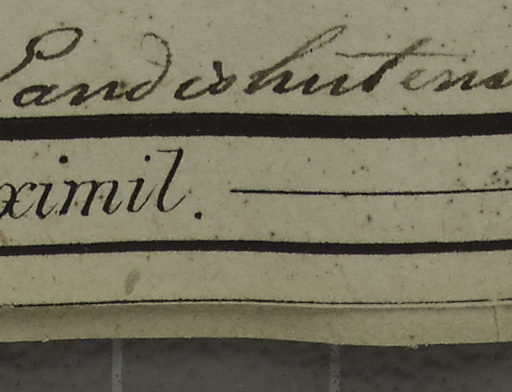 Landishutens
ximil.